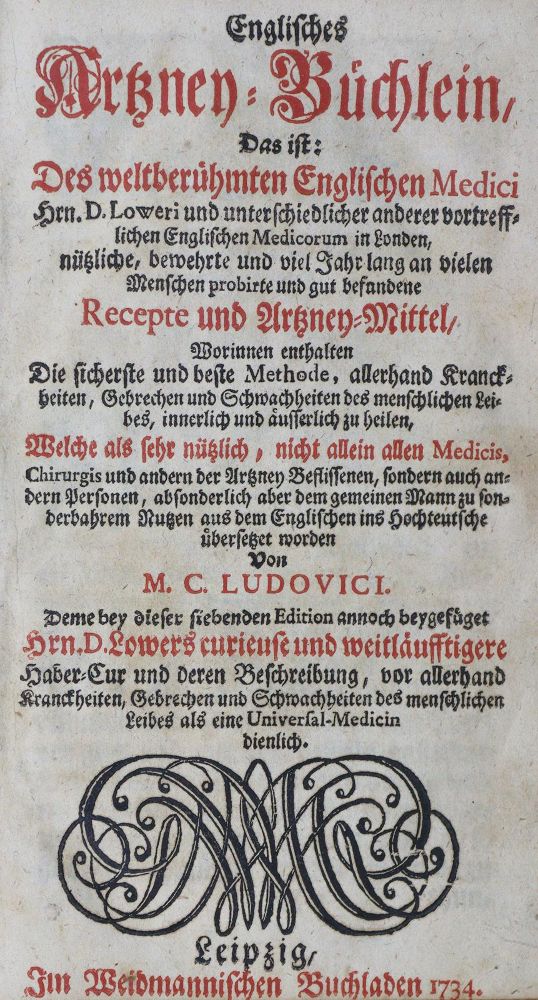 Englisches
Artzney-Büchlein,
Das ist:
Des weltberühmten Englischen Medici
Hrn. D. Loweri und unterschiedlicher anderer vortreff-
lichen Englischen Medicorum in Londen,
nützliche, bewehrte und viel Jahr lang an vielen
Menschen probirte und gut befandene
Recepte und Artzney-Mittel,
Worinnen enthalten
Die sicherste und beste Methode, allerhand Kranck-
heiten, Gebrechen und Schwachheiten des menschlichen Lei-
bes, innerlich und äusserlich zu heilen,
Welche als sehr nützlich, nicht allein allen Medicis,
Chirurgis und andern der Artzney Beflissenen, sondern auch an-
dern Personen, absonderlich aber dem gemeinen Mann zu son-
derbahrem Nutzen aus dem Englischen ins Hochteutsche
übersetzet worden
Von
M. C. LUDOVICI.
Deme bey dieser siebenden Edition annoch beygefüget
Hrn. D. Lowers curieuse und weitläufftigere
Haber-Cur und deren Beschreibung, vor allerhand
Kranckheiten, Gebrechen und Schwachheiten des menschlichen
Leibes als eine Universal-Medicin
dienlich.
Leipzig,
Im Weidmannischen Buchladen 1734.